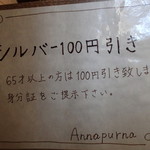 シルバー100円引き
65才以上の方は100円引き致しま
身分証をご提示下さい。
Annapurna